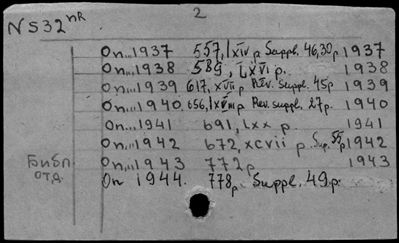 NS32 nR
2
On... 1937 557, lxiv p. Suppl. 46,30p 1937
On... 1938 589, Lxvi p. 1938
On... 1939 617, xvii p. Rev. Suppl. 45p 1939
On... 1940 656, p. Rev. suppl. 27p. 1940
On... 1941 691, lxx p 1941
On... 1942 672, xcvii p Sup. 55p 1942
On... 1943 772p 1943
Библ. On 1944. 778p Suppl. 49.p.
отд.